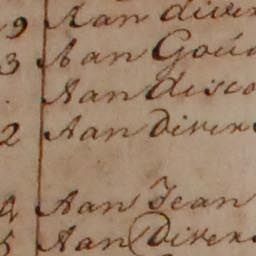 9 Aan diver
3 Aan Goud
Aan disco
2 Aan Divers
4 Aan Jean
5 Aan Divers